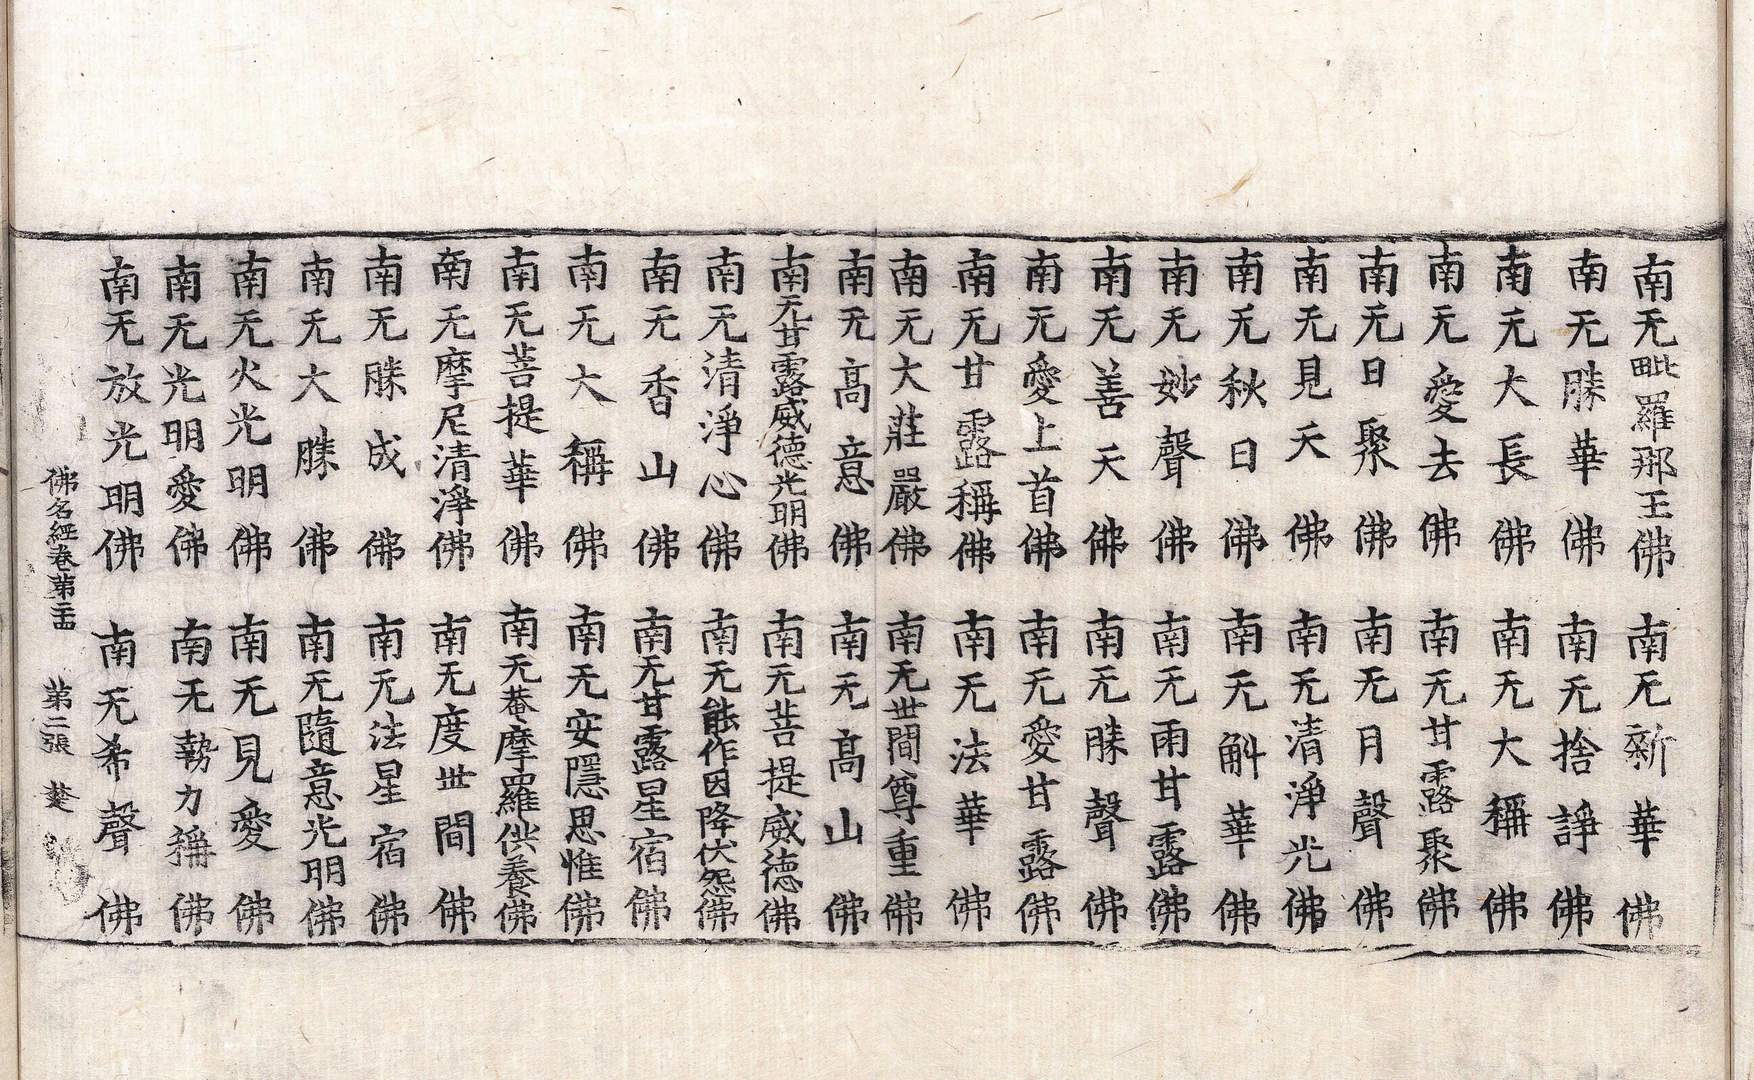 南无毗羅那王佛　南无新華佛
南无勝華佛　南无捨諍佛
南无大長佛　南无大稱佛
南无愛去佛　南无甘露聚佛
南无日聚佛　南无月聲佛
南无見天佛　南无清淨光佛
南无秋日佛　南无斛華佛
南无妙聲佛　南无雨甘露佛
南无善天佛　南无勝聲佛
南无愛上首佛　南无愛甘露佛
南无甘露稱佛　南无法華佛
南无大莊嚴佛　南无世間尊重佛
南无高意佛　南无高山佛
南无甘露威德光明佛　南无菩提威德佛
南无清淨心佛　南无能作因降伏怨佛
南无香山佛　南无甘露星宿佛
南无大稱佛　南无安隱思惟佛
南无菩提華佛　南无菴摩羅供養佛
南无摩尼清淨佛　南无度世間佛
南无勝成佛　南无法星宿佛
南无大勝佛　南无隨意光明佛
南无火光明佛　南无見愛佛
南无光明愛佛　南无勢力稱佛
南无放光明佛　南无希聲佛
佛名經卷第二十四　第二張